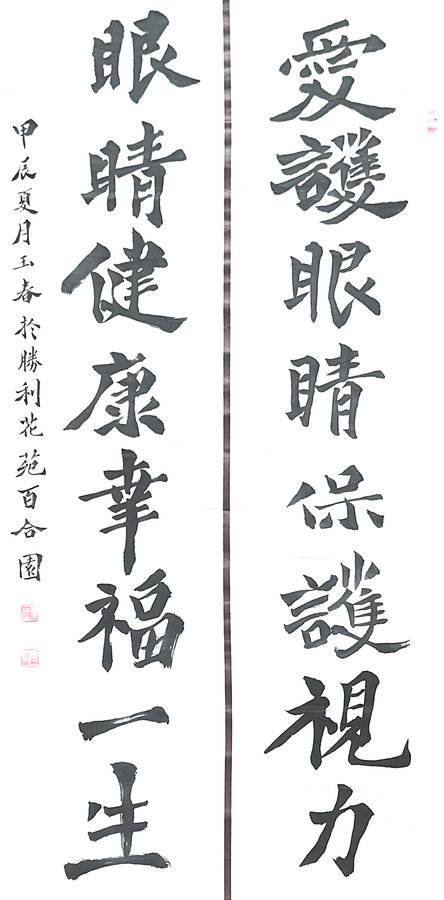 愛護眼睛保護視力
眼睛健康幸福一生
甲辰夏月玉春於勝利花苑百合園